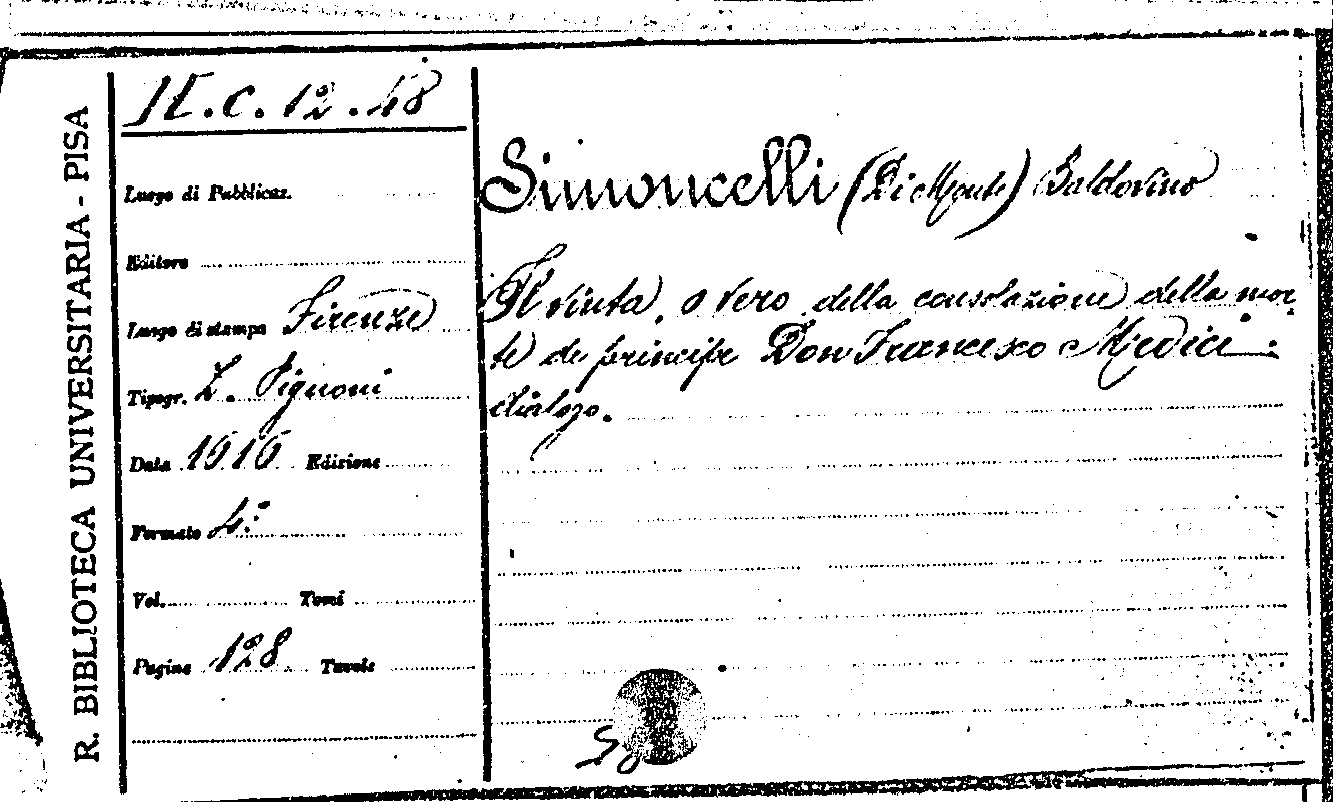 R. BIBLIOTECA UNIVERSITARIA - PISA
H.c.12.48
Luogo di Pubblicaz.
Editore
Luogo di stampa Firenze
Tipogr. Z. Pignoni
Data 1616 Edizione
Formato 4°
Vol. Tomi
Pagine 128 Tavole
Simoncelli (Di Monte) Baldovino
Il vinta, o vero della consolazione della mor-
te de principe Don Francesco Medici.
dialogo.